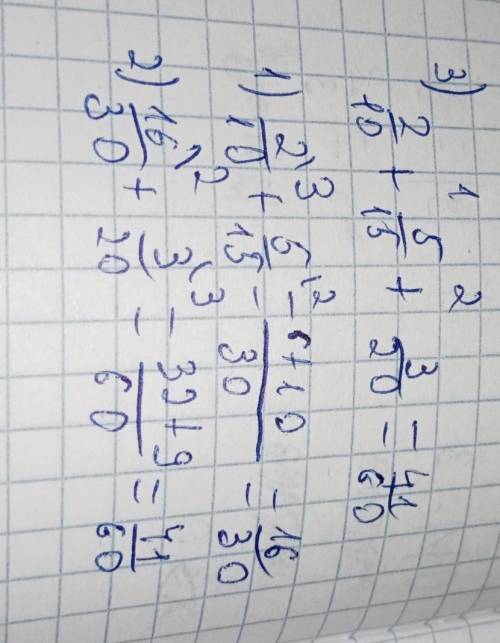 3) 2/10 + 5/15 + 3/20 = 41/60
1 2
1) 2\3/10 + 5\2/15 = 6+10/30 = 16/30
2) 16\2/30 + 3\3/20 = 32+9/60 = 41/60